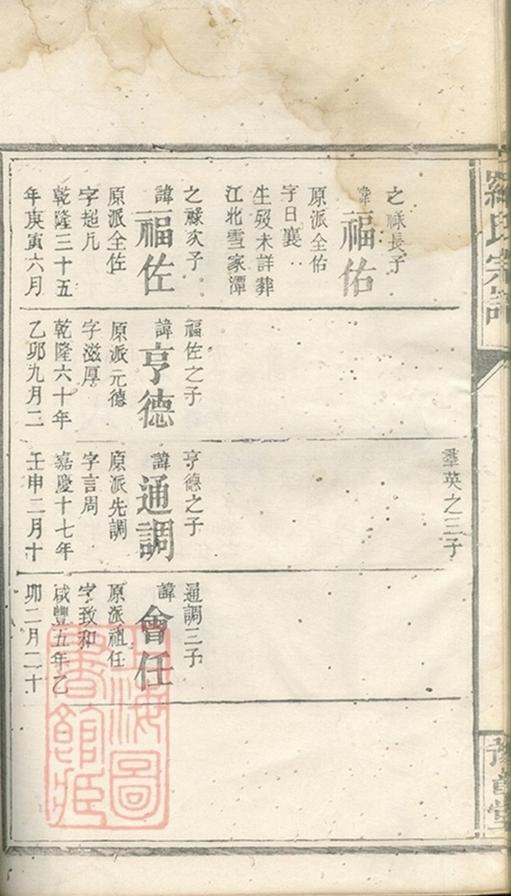 羅氏宗譜
之祿長子
諱福佑
原派全佑
字日襄
生歿未詳葬
江北雪家潭
之祿次子
諱福佐
原派全佐
字超凡
乾隆三十五
年庚寅六月
福佐之子
諱亨德
原派元德
字滋厚
乾隆六十年
乙卯九月二
羣英之三子
亨德之子
諱通調
原派先調
字言周
嘉慶十七年
壬申二月十
通調三子
諱會任
原派祖任
字致和
咸豐五年乙
卯二月二十
豫章堂
上海圖
書館藏